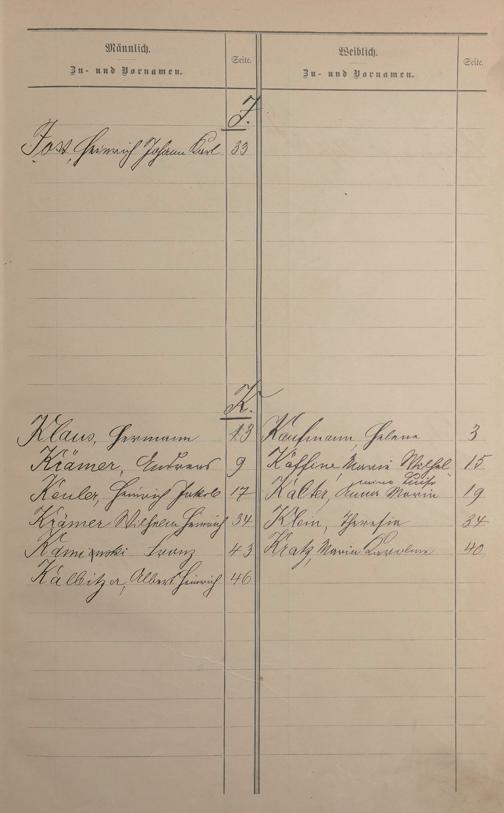 Männlich. Weiblich.
Zu- und Vornamen. Seite. Zu- und Vornamen. Seite.
J.
Jost, Heinrich Johann Karl 33
K.
Klaus, Hermann 13 Kaufmann, Helene 3
Krämer, Andreas 9 Kaffine, Maria Wilhel 15
mine Luise
Keuler, Heinrich Jakob 17 Kalter, Anna Maria 19
Krämer Wilhelm Heinrich 34 Klein, Theresia 34
Kaminski Franz 43 Kratz, Maria Caroline 40
Kalbitzer, Albert Heinrich 46